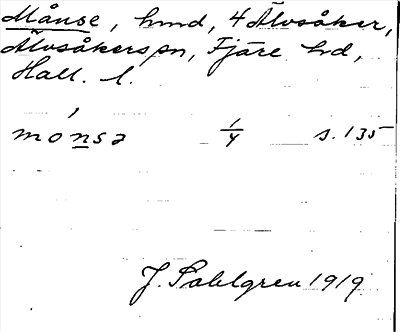 Månse, hund, 4 Älvsåker,
Älvsåkers sn, Fjäre hd,
Hall. l.
mónsa 1/4 s. 135
J. Sahlgren 1919